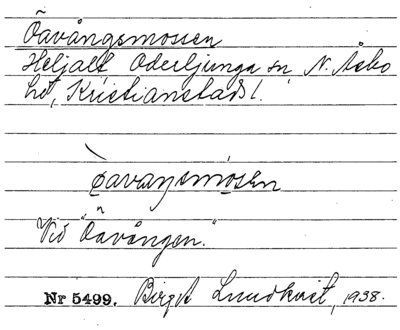 Öavångsmossen
Heljalt Oderljunga sn N. Åsbo
hd, Kristianstads l.
Vid "Öavången."
Nr 5499. Birgit Lundkvist, 1938.